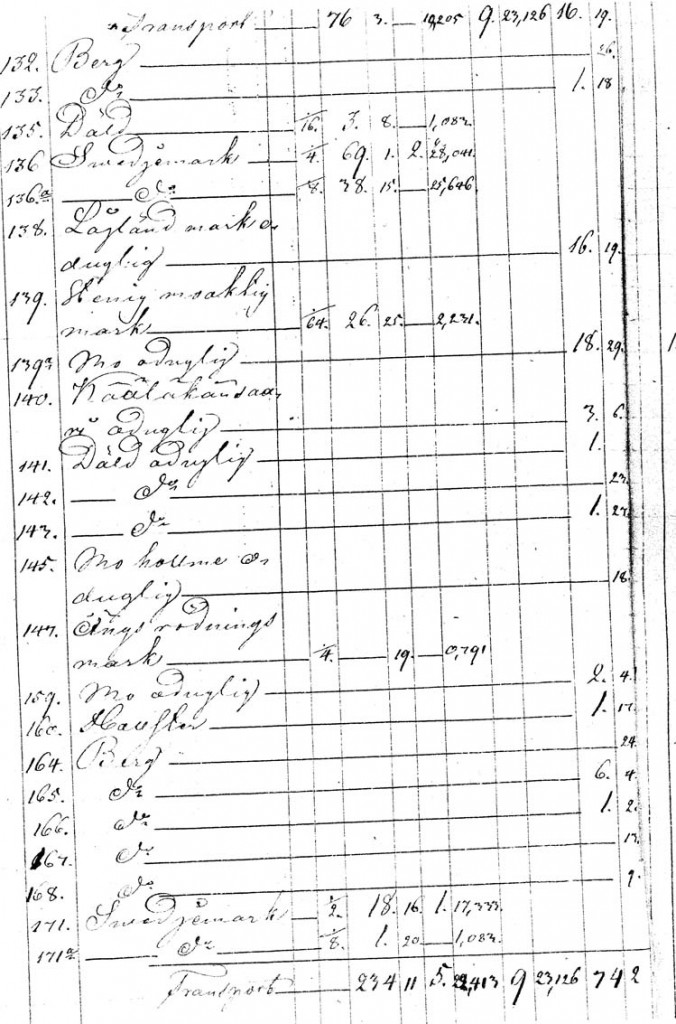 Transport 76 3. 19,205 9. 23,126 16. 19.
132. Berg 26.
133. Do 1. 18
135. Däld 1/16. 3. 8. 1,083.
136 Swedjemark 1/4. 69. 1. 2. 28,041.
136.a Do 1/8. 38. 15. 25,646.
138. Lågländ mark o
duglig 16. 19.
139. Stenig moaktig
mark 1/64. 26. 25. 2,231.
139a Mo oduglig 18. 29.
140.
oduglig 3. 6.
141. Däld oduglig 1.
142. Do 23.
143. Do 1. 23.
145. Mo holme o
duglig 18.
147. Ängs rödnings
mark 1/4. 19. 0,791
159. Mo oduglig 2. 4.
160. 1. 17.
164. Berg 24.
165. Do 6. 4.
166. Do 1. 2.
167. Do 13.
168. Do 9.
171. Swedjemark 1/2. 18. 16. 1. 17,333.
171a Do 1/8. 1. 20 1,083.
Transport 234 11 5. 22,413 9 23,126 74 2